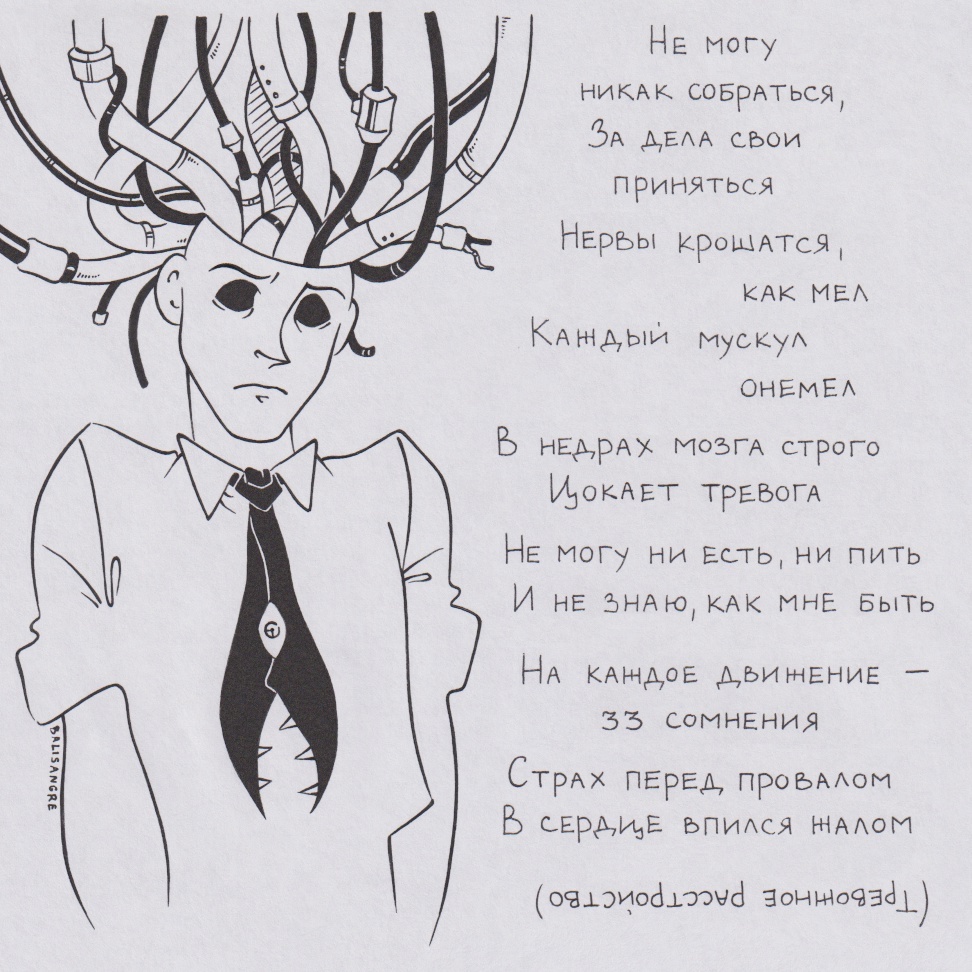 Не могу
никак собраться,
За дела свои
приняться
Нервы крошатся,
как мел
Каждый мускул
онемел
В недрах мозга строго
Цокает тревога
Не могу ни есть, ни пить
И не знаю, как мне быть
На каждое движение –
33 сомнения
Страх перед провалом
В сердце впился жалом
(Тревожное расстройство)
BALISANGRE